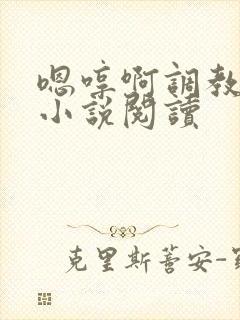 嗯哼啊調教
小說閱讀
克里斯蒂安-